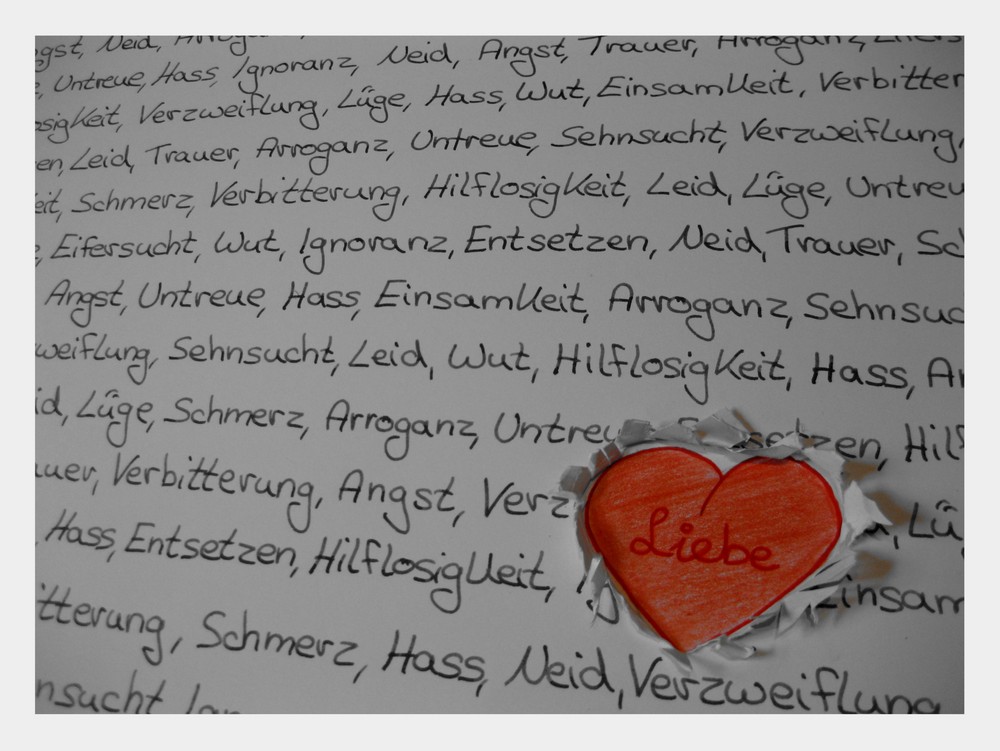 Neid,
Untreue, Hass, Ignoranz, Neid, Angst, Trauer, Arroganz,
Verzweiflung, Lüge, Hass, Wut, Einsamkeit, Verbitter
en, Leid, Trauer, Arroganz, Untreue, Sehnsucht, Verzweiflung,
eit, Schmerz, Verbitterung, Hilflosigkeit, Leid, Lüge, Untreu
Eifersucht, Wut, Ignoranz, Entsetzen, Neid, Trauer, Sc
Angst, Untreue, Hass, Einsamkeit, Arroganz, Sehnsuc
weiflung, Sehnsucht, Leid, Wut, Hilflosigkeit, Hass, Ar
id, Lüge, Schmerz, Arroganz, Untreu setzen, Hilf
uer, Verbitterung, Angst, Verz Lü
Liebe
Hass, Entsetzen, Hilflosigkeit, Einsam
itterung, Schmerz, Hass, Neid, Verzweiflung
nsucht